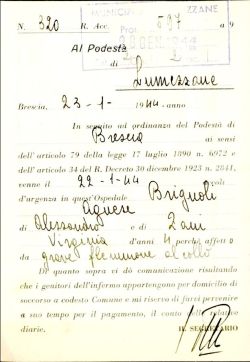 N. 320 R. Acc. 597 a 9
Al Podestà
di
Lumezzane
Brescia, 23-1- 1944 -anno
In seguito ad ordinanza del Podestà di
Brescia ai sensi
dell'articolo 79 della legge 17 luglio 1890 n. 6972 e
dell'articolo 34 del R. Decreto 30 dicembre 1923 n. 2841,
venne il 22-1-44 accolt
d'urgenza in quest'Ospedale Brignoli
Agnese
di Alessandro e
Virginia d'anni 4 perchè affett a
da grave flemmone al collo
Di quanto sopra vi dò comunicazione risultando
che i genitori dell'infermo appartengono per domicilio di
soccorso a codesto Comune e mi riservo di farvi pervenire
a suo tempo per il pagamento, il conto delle relative
diarie.
IL SEGRETARIO